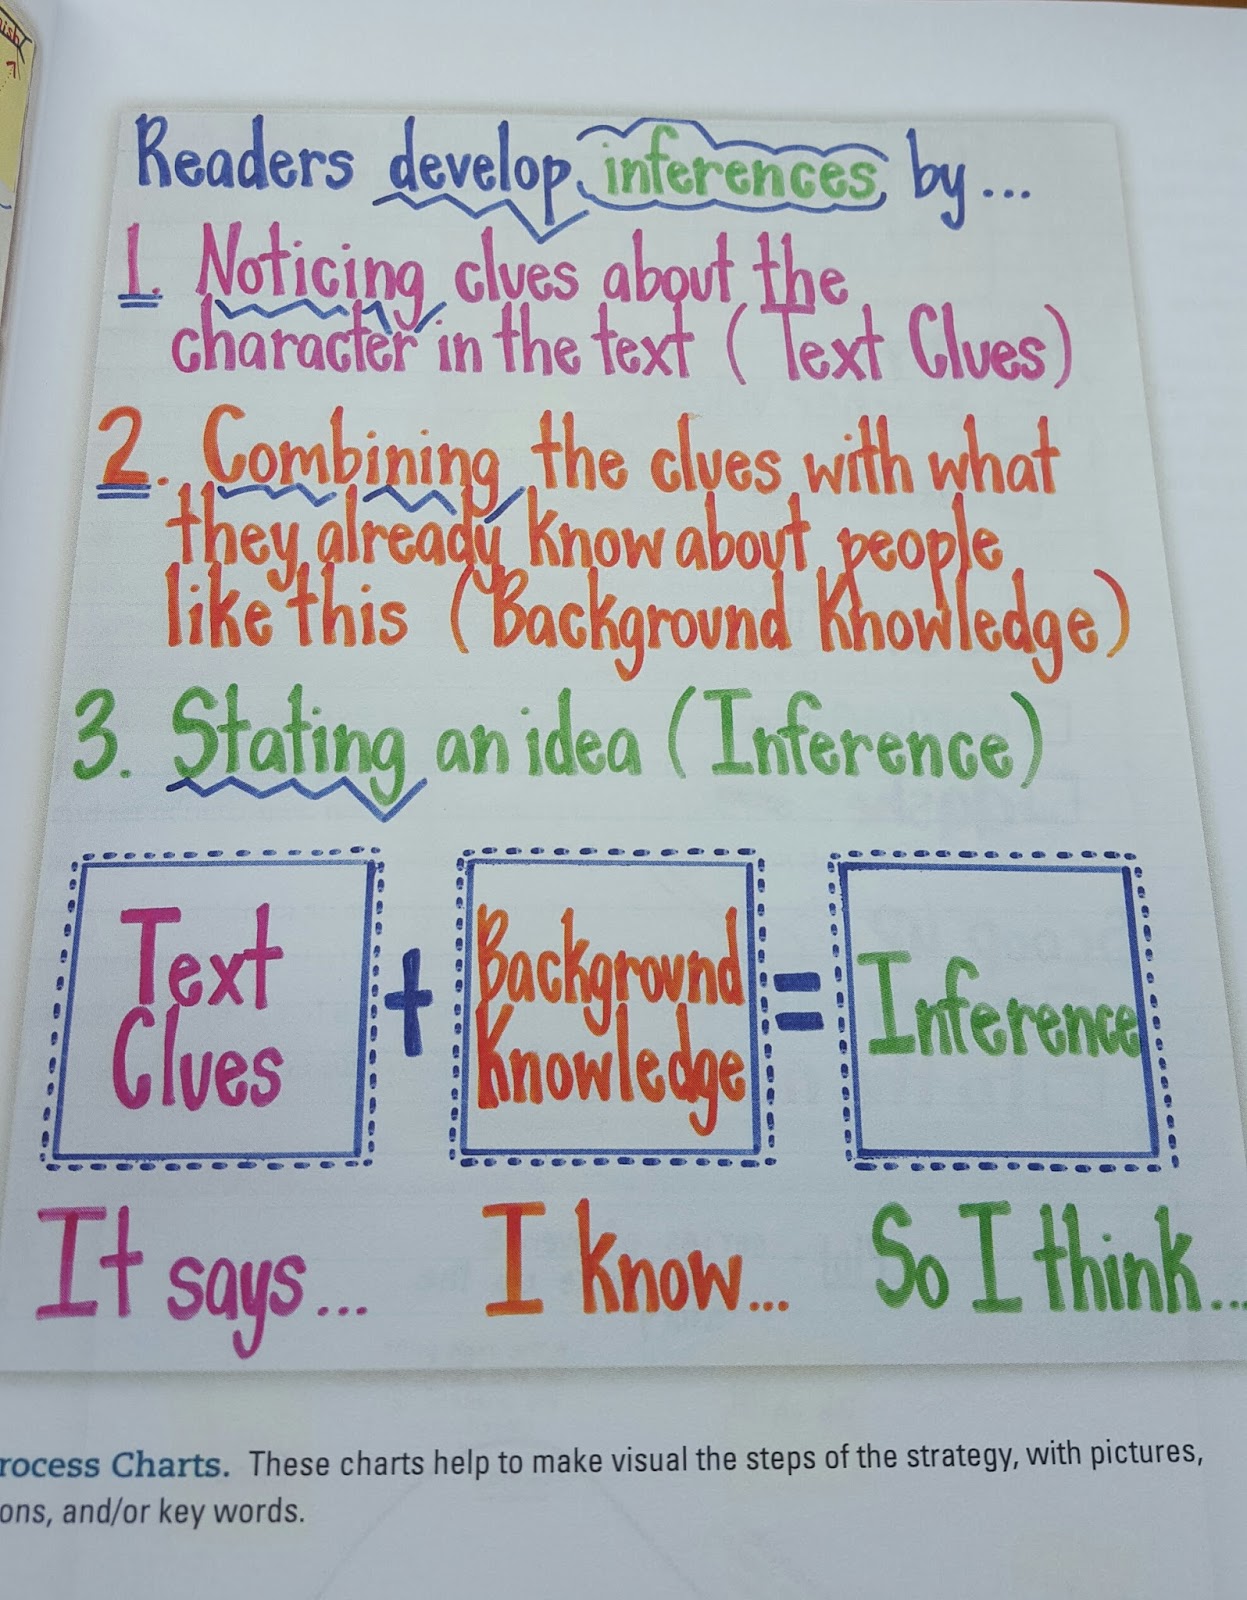 Readers develop inferences by...
1. Noticing clues about the
character in the text (Text Clues)
2. Combining the clues with what
they already know about people
like this (Background Knowledge)
3. Stating an idea (Inference)
Text
Clues
+
Background
Knowledge
=
Inference
It says...
I know...
So I think...
rocess Charts. These charts help to make visual the steps of the strategy, with pictures,
ons, and/or key words.